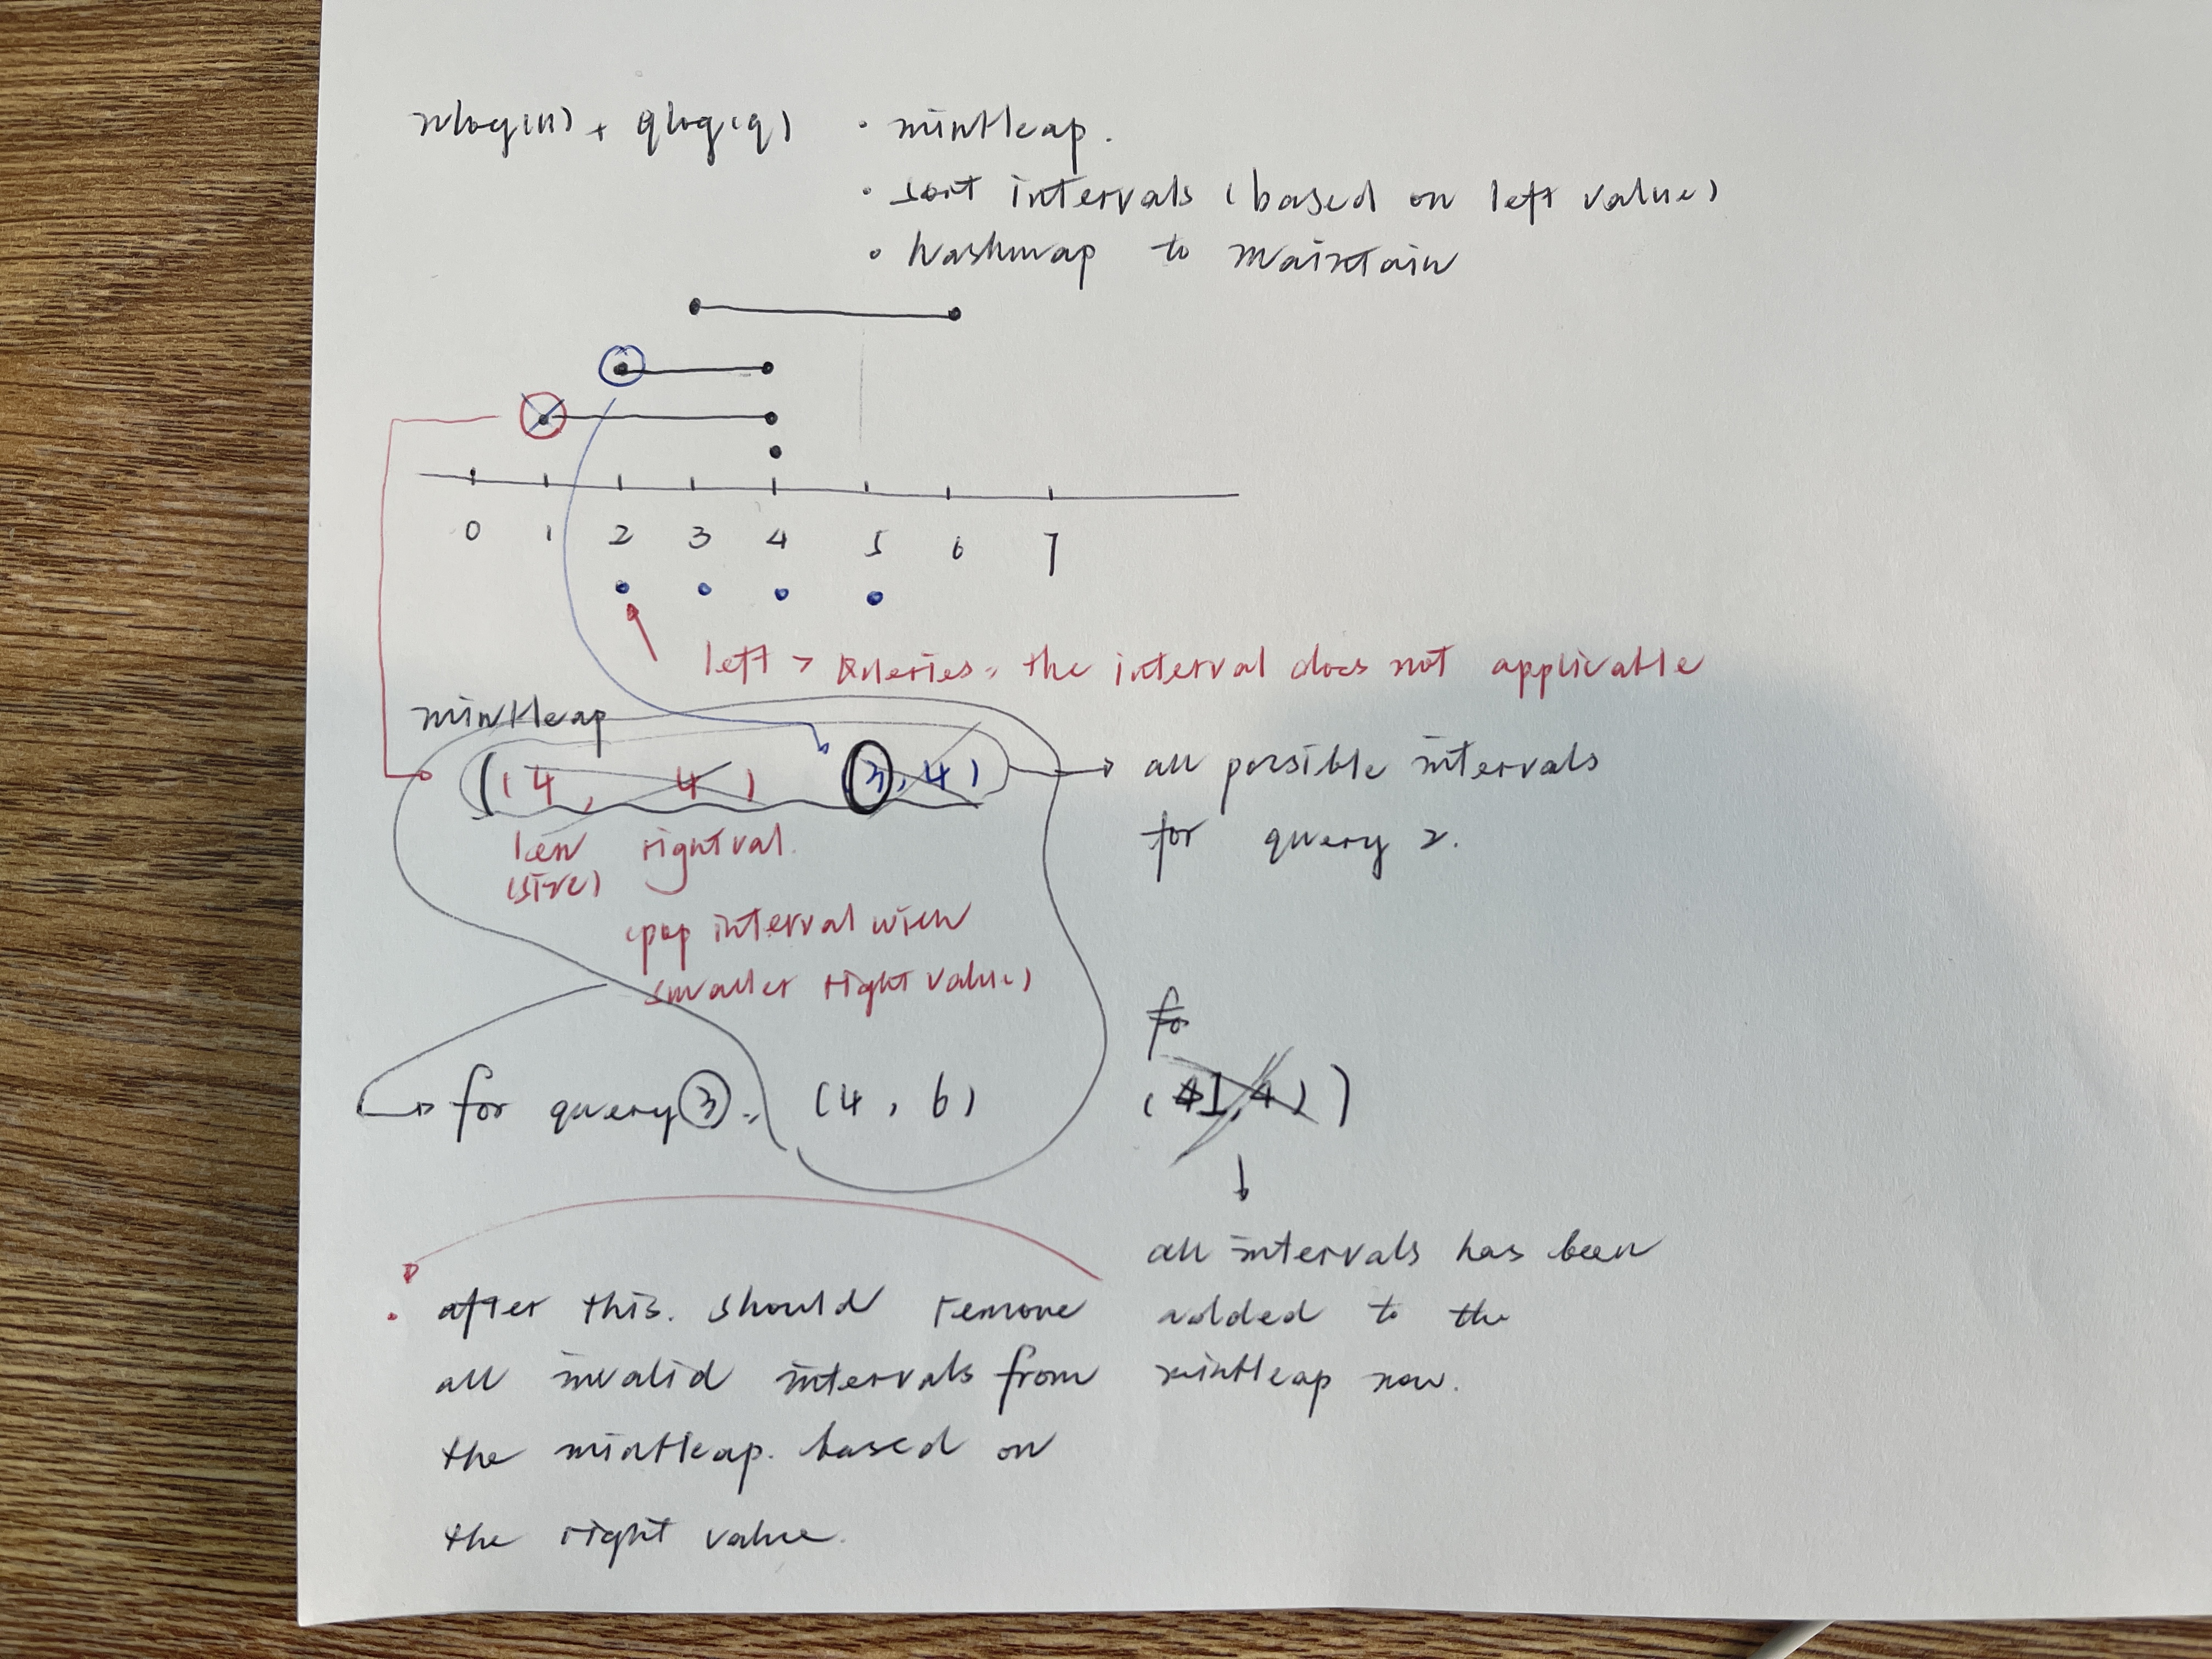 nlog(n) + qlog(q)
• minHeap.
• sort intervals (based on left value)
• hashmap to maintain
0 1 2 3 4 5 6 7
left > queries, the interval does not applicable
minHeap
(4, 4) (3, 4)
len rightval.
(size)
(pop interval with
smaller right value)
all possible intervals
for query 2.
for query 3. (4, 6)
fo
(1, 4))
all intervals has been
added to the
minHeap now.
• after this. should remove
all invalid intervals from
the minHeap. based on
the right value.